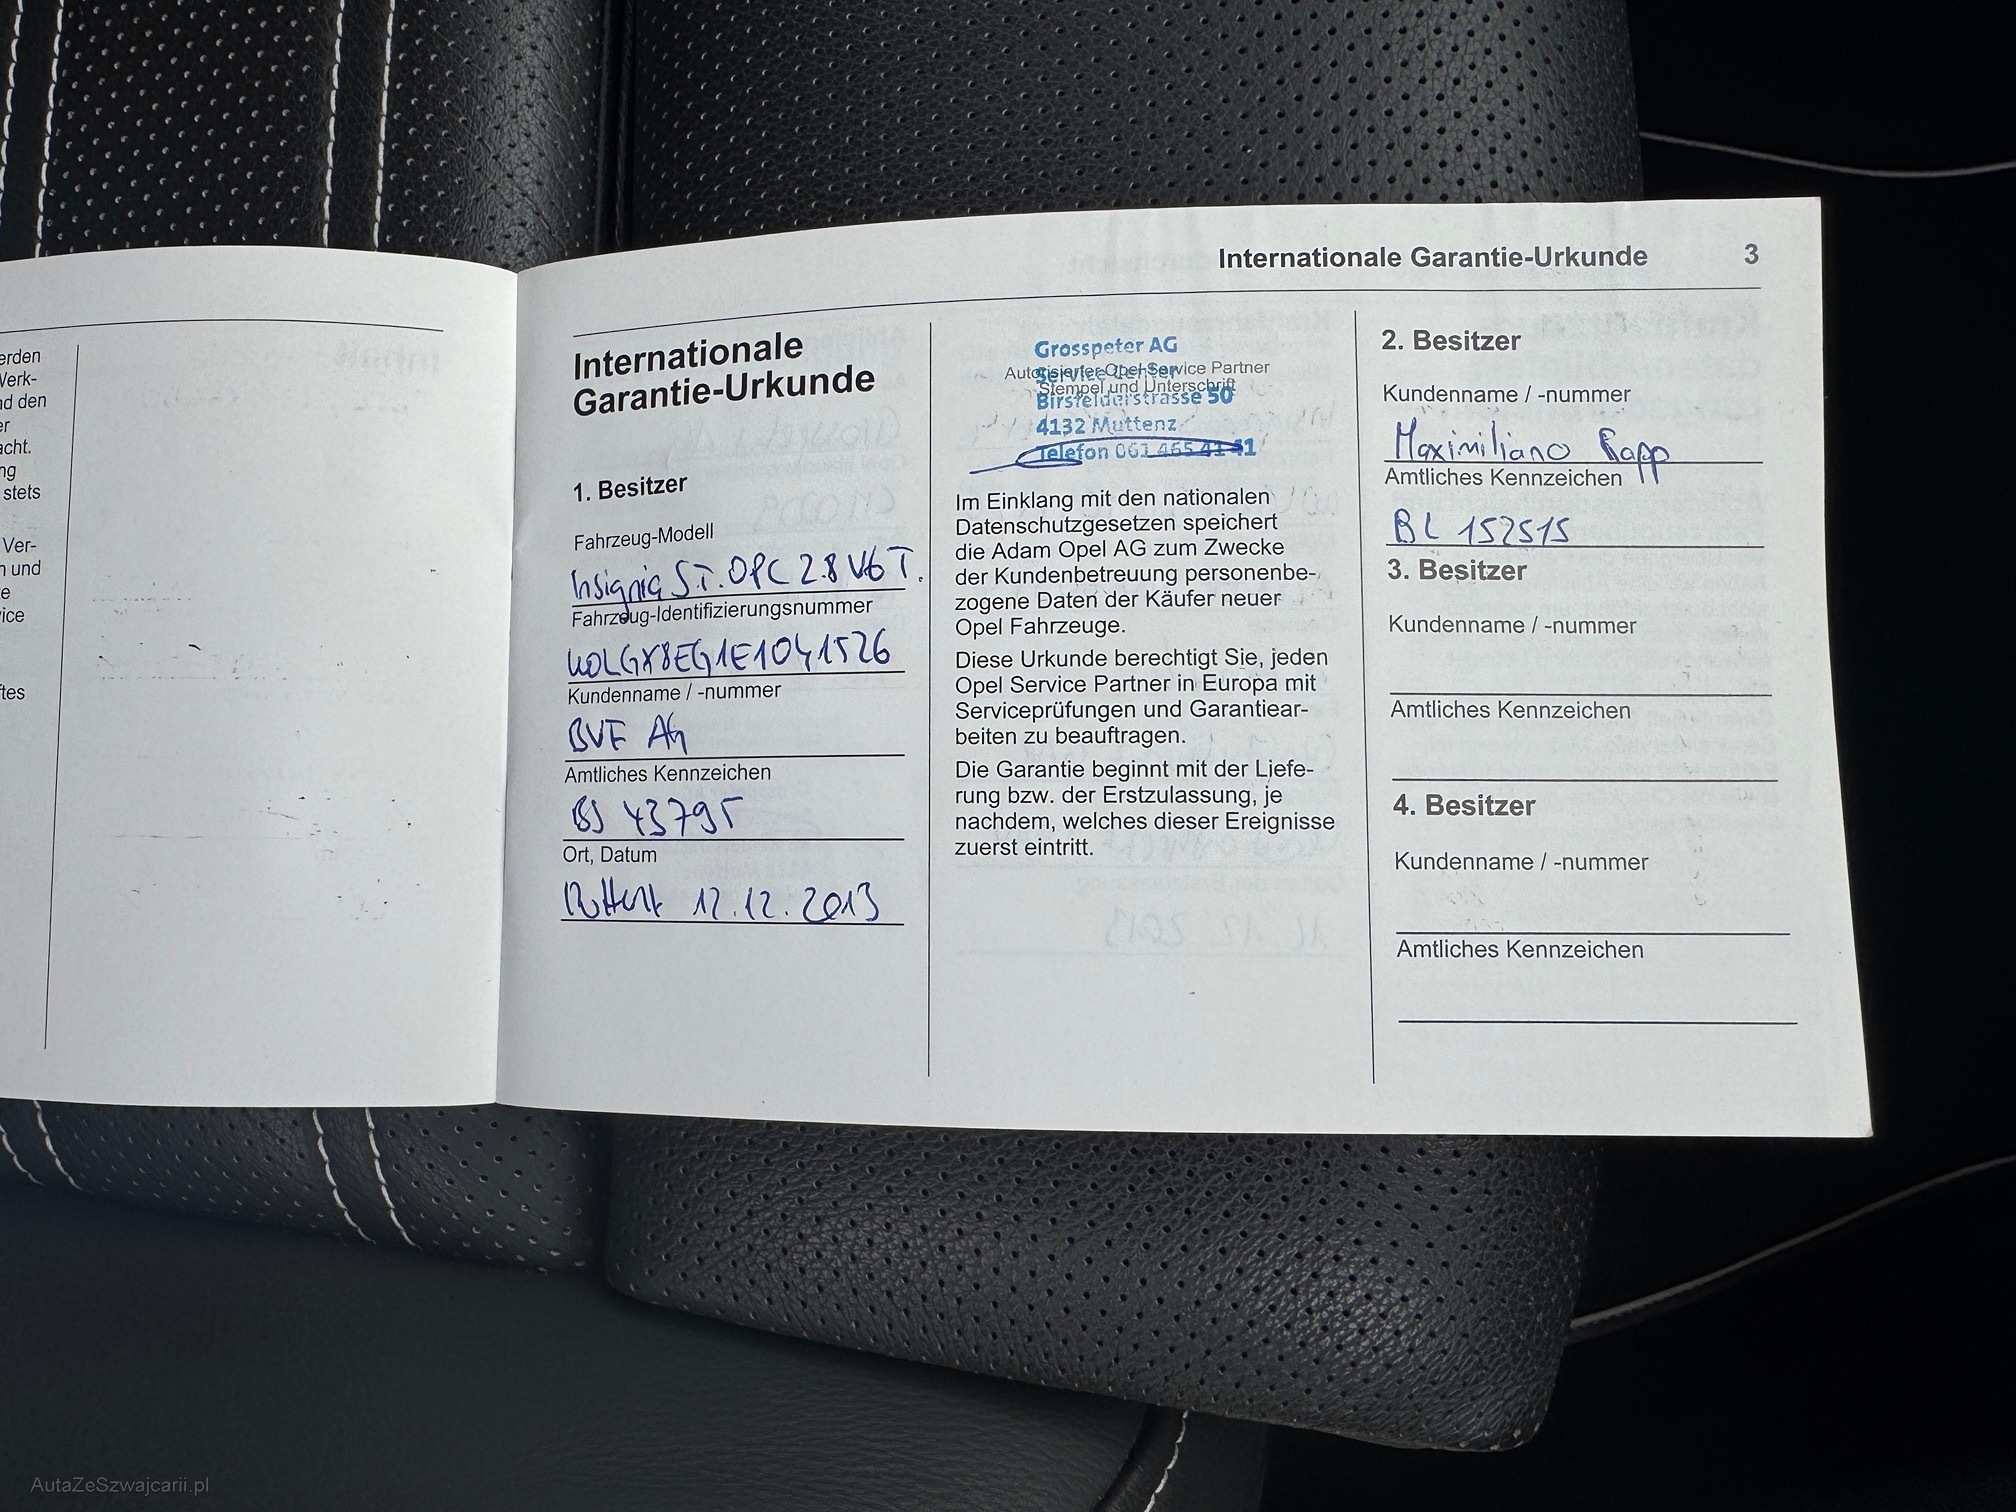 erden
Werk-
nd den
er
acht.
ng
stets
Ver-
n und
e
ice
ftes
Internationale Garantie-Urkunde 3
Internationale
Garantie-Urkunde
1. Besitzer
Fahrzeug-Modell
Insignia S.T. OPC 2.8 V6 T.
Fahrzeug-Identifizierungsnummer
W0LGX8EG1E1041526
Kundenname / -nummer
BVF AG
Amtliches Kennzeichen
BS 43795
Ort, Datum
12.12.2013
Grosspeter AG
Autorisierter Opel Service Partner
Service Center
Stempel und Unterschrift
Birsfelderstrasse 50
4132 Muttenz
Telefon 061 465 41 41
Im Einklang mit den nationalen
Datenschutzgesetzen speichert
die Adam Opel AG zum Zwecke
der Kundenbetreuung personenbe-
zogene Daten der Käufer neuer
Opel Fahrzeuge.
Diese Urkunde berechtigt Sie, jeden
Opel Service Partner in Europa mit
Serviceprüfungen und Garantiear-
beiten zu beauftragen.
Die Garantie beginnt mit der Liefe-
rung bzw. der Erstzulassung, je
nachdem, welches dieser Ereignisse
zuerst eintritt.
2. Besitzer
Kundenname / -nummer
Maximiliano Rapp
Amtliches Kennzeichen
BL 152515
3. Besitzer
Kundenname / -nummer
Amtliches Kennzeichen
4. Besitzer
Kundenname / -nummer
Amtliches Kennzeichen
AutaZeSzwajcarii.pl